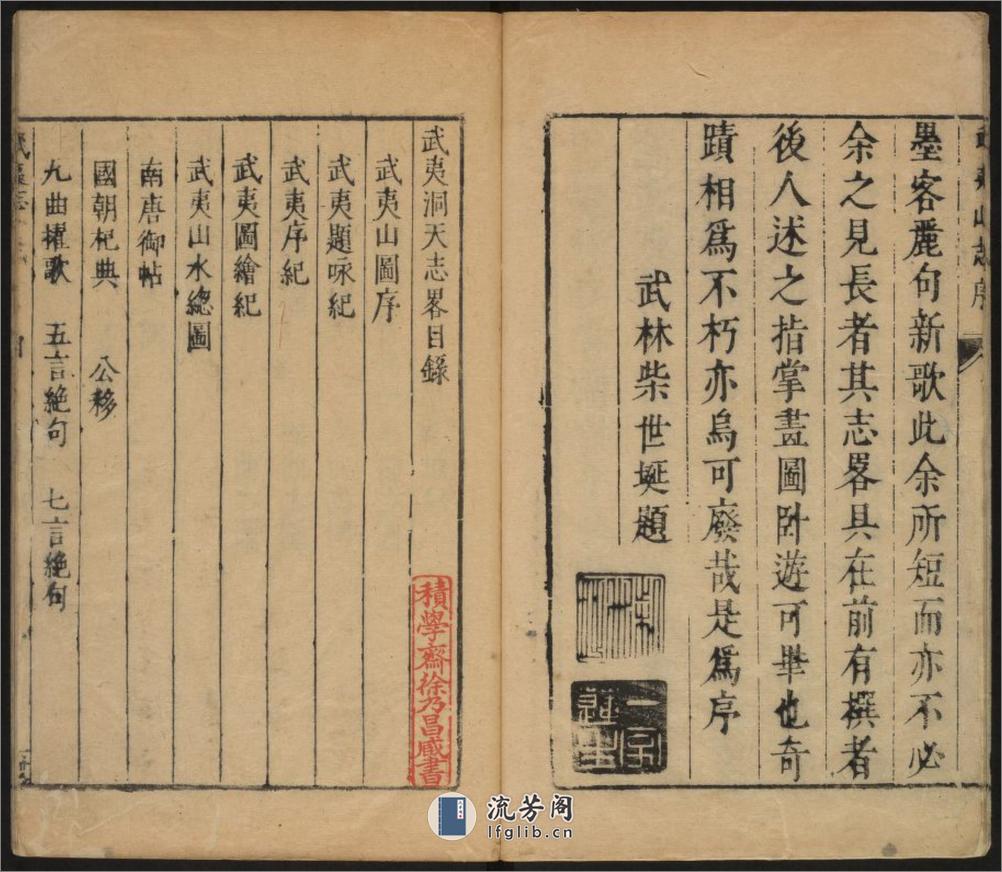 墨客麗句新歌此余所短而亦不必
余之見長者其志畧具在前有撰者
後人述之指掌畫圖卧遊可畢也奇
蹟相爲不朽亦烏可廢哉是爲序
武林柴世埏題
武夷洞天志畧目錄
武夷山圖序
武夷題咏紀
武夷序紀
武夷圖繪紀
武夷山水總圖
南唐御帖
國朝祀典 公移
九曲櫂歌 五言絶句 七言絶句
積學齋徐乃昌藏書
流芳阁
lfglib.cn